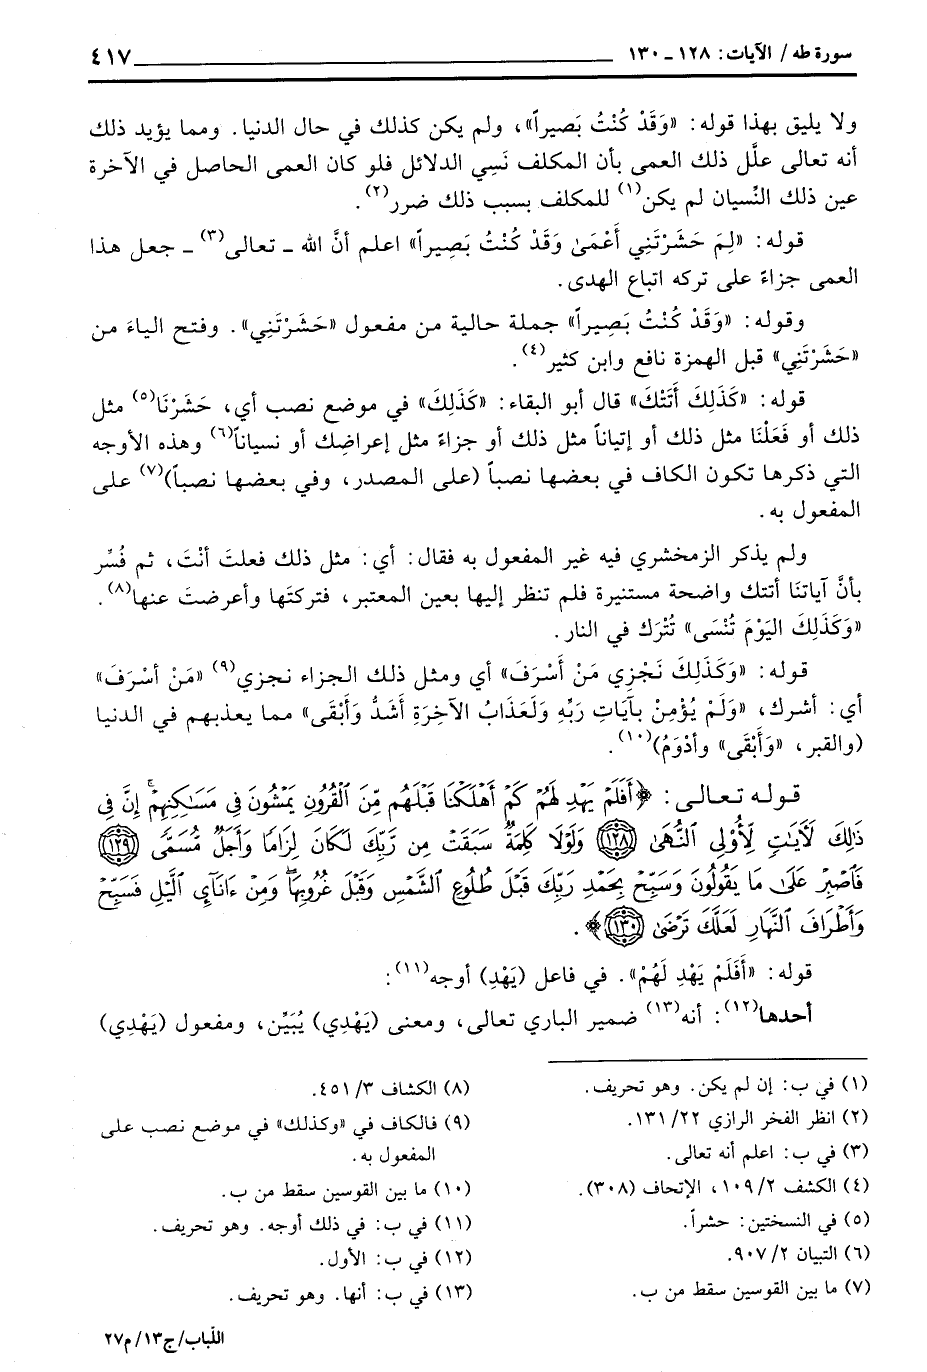 سورة طه/ الآيات: ١٢٨ ـ ١٣٠ ٤١٧
ولا يليق بهذا قوله: «وَقَدْ كُنْتُ بَصيراً»، ولم يكن كذلك في حال الدنيا. ومما يؤيد ذلك
أنه تعالى علَّل ذلك العمى بأن المكلف نَسِي الدلائل فلو كان العمى الحاصل في الآخرة
عين ذلك النِّسيان لم يكن(١) للمكلف بسبب ذلك ضرر(٢).
قوله: «لِمَ حَشَرْتَنِي أَعْمَىٰ وَقَدْ كُنْتُ بَصِيراً» اعلم أنَّ الله ـ تعالى(٣) ـ جعل هذا
العمى جزاءً على تركه اتباع الهدى.
وقوله: «وَقَدْ كُنْتُ بَصِيراً» جملة حالية من مفعول «حَشَرْتَنِي». وفتح الياءَ من
«حَشَرْتَنِي» قبل الهمزة نافع وابن كثير(٤).
قوله: «كَذَلِكَ أَتَتْكَ» قال أبو البقاء: «كَذَلِكَ» في موضع نصب أي، حَشَرْنَا(٥) مثل
ذلك أو فَعَلْنَا مثل ذلك أو إتياناً مثل ذلك أو جزاءً مثل إعراضِك أو نسياناً(٦) وهذه الأوجه
التي ذكرها تكون الكاف في بعضها نصباً (على المصدر، وفي بعضها نصباً)(٧) على
المفعول به.
ولم يذكر الزمخشري فيه غير المفعول به فقال: أي: مثل ذلك فعلتَ أنْتَ، ثم فُسِّر
بأنَّ آياتنَا أتتك واضحة مستنيرة فلم تنظر إليها بعين المعتبر، فتركتَها وأعرضتَ عنها(٨).
«وَكَذَلِكَ اليَوْمَ تُنْسَى» تُتْرَك في النار.
قوله: «وَكَذَلِكَ نَجْزِي مَنْ أَسْرَفَ» أي ومثل ذلك الجزاء نجزي(٩) «مَنْ أسْرَفَ»
أي: أشرك، «وَلَمْ يُؤمِنْ بآيَاتِ رَبِّهِ وَلَعَذَابُ الآخِرَةِ أشَدُّ وَأَبْقَى» مما يعذبهم في الدنيا
(والقبر، «وَأَبْقَى» وأدْوَمُ)(١٠).
قوله تعالى: ﴿أَفَلَمْ يَهْدِ لَهُمْ كَمْ أَهْلَكْنَا قَبْلَهُم مِّنَ ٱلْقُرُونِ يَمْشُونَ فِي مَسَٰكِنِهِمْ ۗ إِنَّ فِي
ذَٰلِكَ لَأٓيَٰتٍ لِّأُوْلِي ٱلنُّهَىٰ ١٢٨ وَلَوْلَا كَلِمَةٌ سَبَقَتْ مِن رَّبِّكَ لَكَانَ لِزَامًا وَأَجَلٌ مُّسَمًّى ١٢٩
فَٱصْبِرْ عَلَىٰ مَا يَقُولُونَ وَسَبِّحْ بِحَمْدِ رَبِّكَ قَبْلَ طُلُوعِ ٱلشَّمْسِ وَقَبْلَ غُرُوبِهَا ۖ وَمِنْ ءَانَآيِٕ ٱلَّيْلِ فَسَبِّحْ
وَأَطْرَافَ ٱلنَّهَارِ لَعَلَّكَ تَرْضَىٰ ١٣٠﴾.
قوله: «أَفَلَمْ يَهْدِ لَهُمْ». في فاعل (يَهْدِ) أوجه(١١):
أحدها(١٢): أنه(١٣) ضمير الباري تعالى، ومعنى (يَهْدِي) يُبَيِّن، ومفعول (يَهْدِي)
(١) في ب: إن لم يكن. وهو تحريف.
(٢) انظر الفخر الرازي ٢٢/ ١٣١.
(٣) في ب: اعلم أنه تعالى.
(٤) الكشف ٢/ ١٠٩، الإتحاف (٣٠٨).
(٥) في النسختين: حشراً.
(٦) التبيان ٢/ ٩٠٧.
(٧) ما بين القوسين سقط من ب.
(٨) الكشاف ٣/ ٤٥١.
(٩) فالكاف في «وكذلك» في موضع نصب على
المفعول به.
(١٠) ما بين القوسين سقط من ب.
(١١) في ب: في ذلك أوجه. وهو تحريف.
(١٢) في ب: الأول.
(١٣) في ب: أنها. وهو تحريف.
اللّباب/ ج١٣/ م٢٧